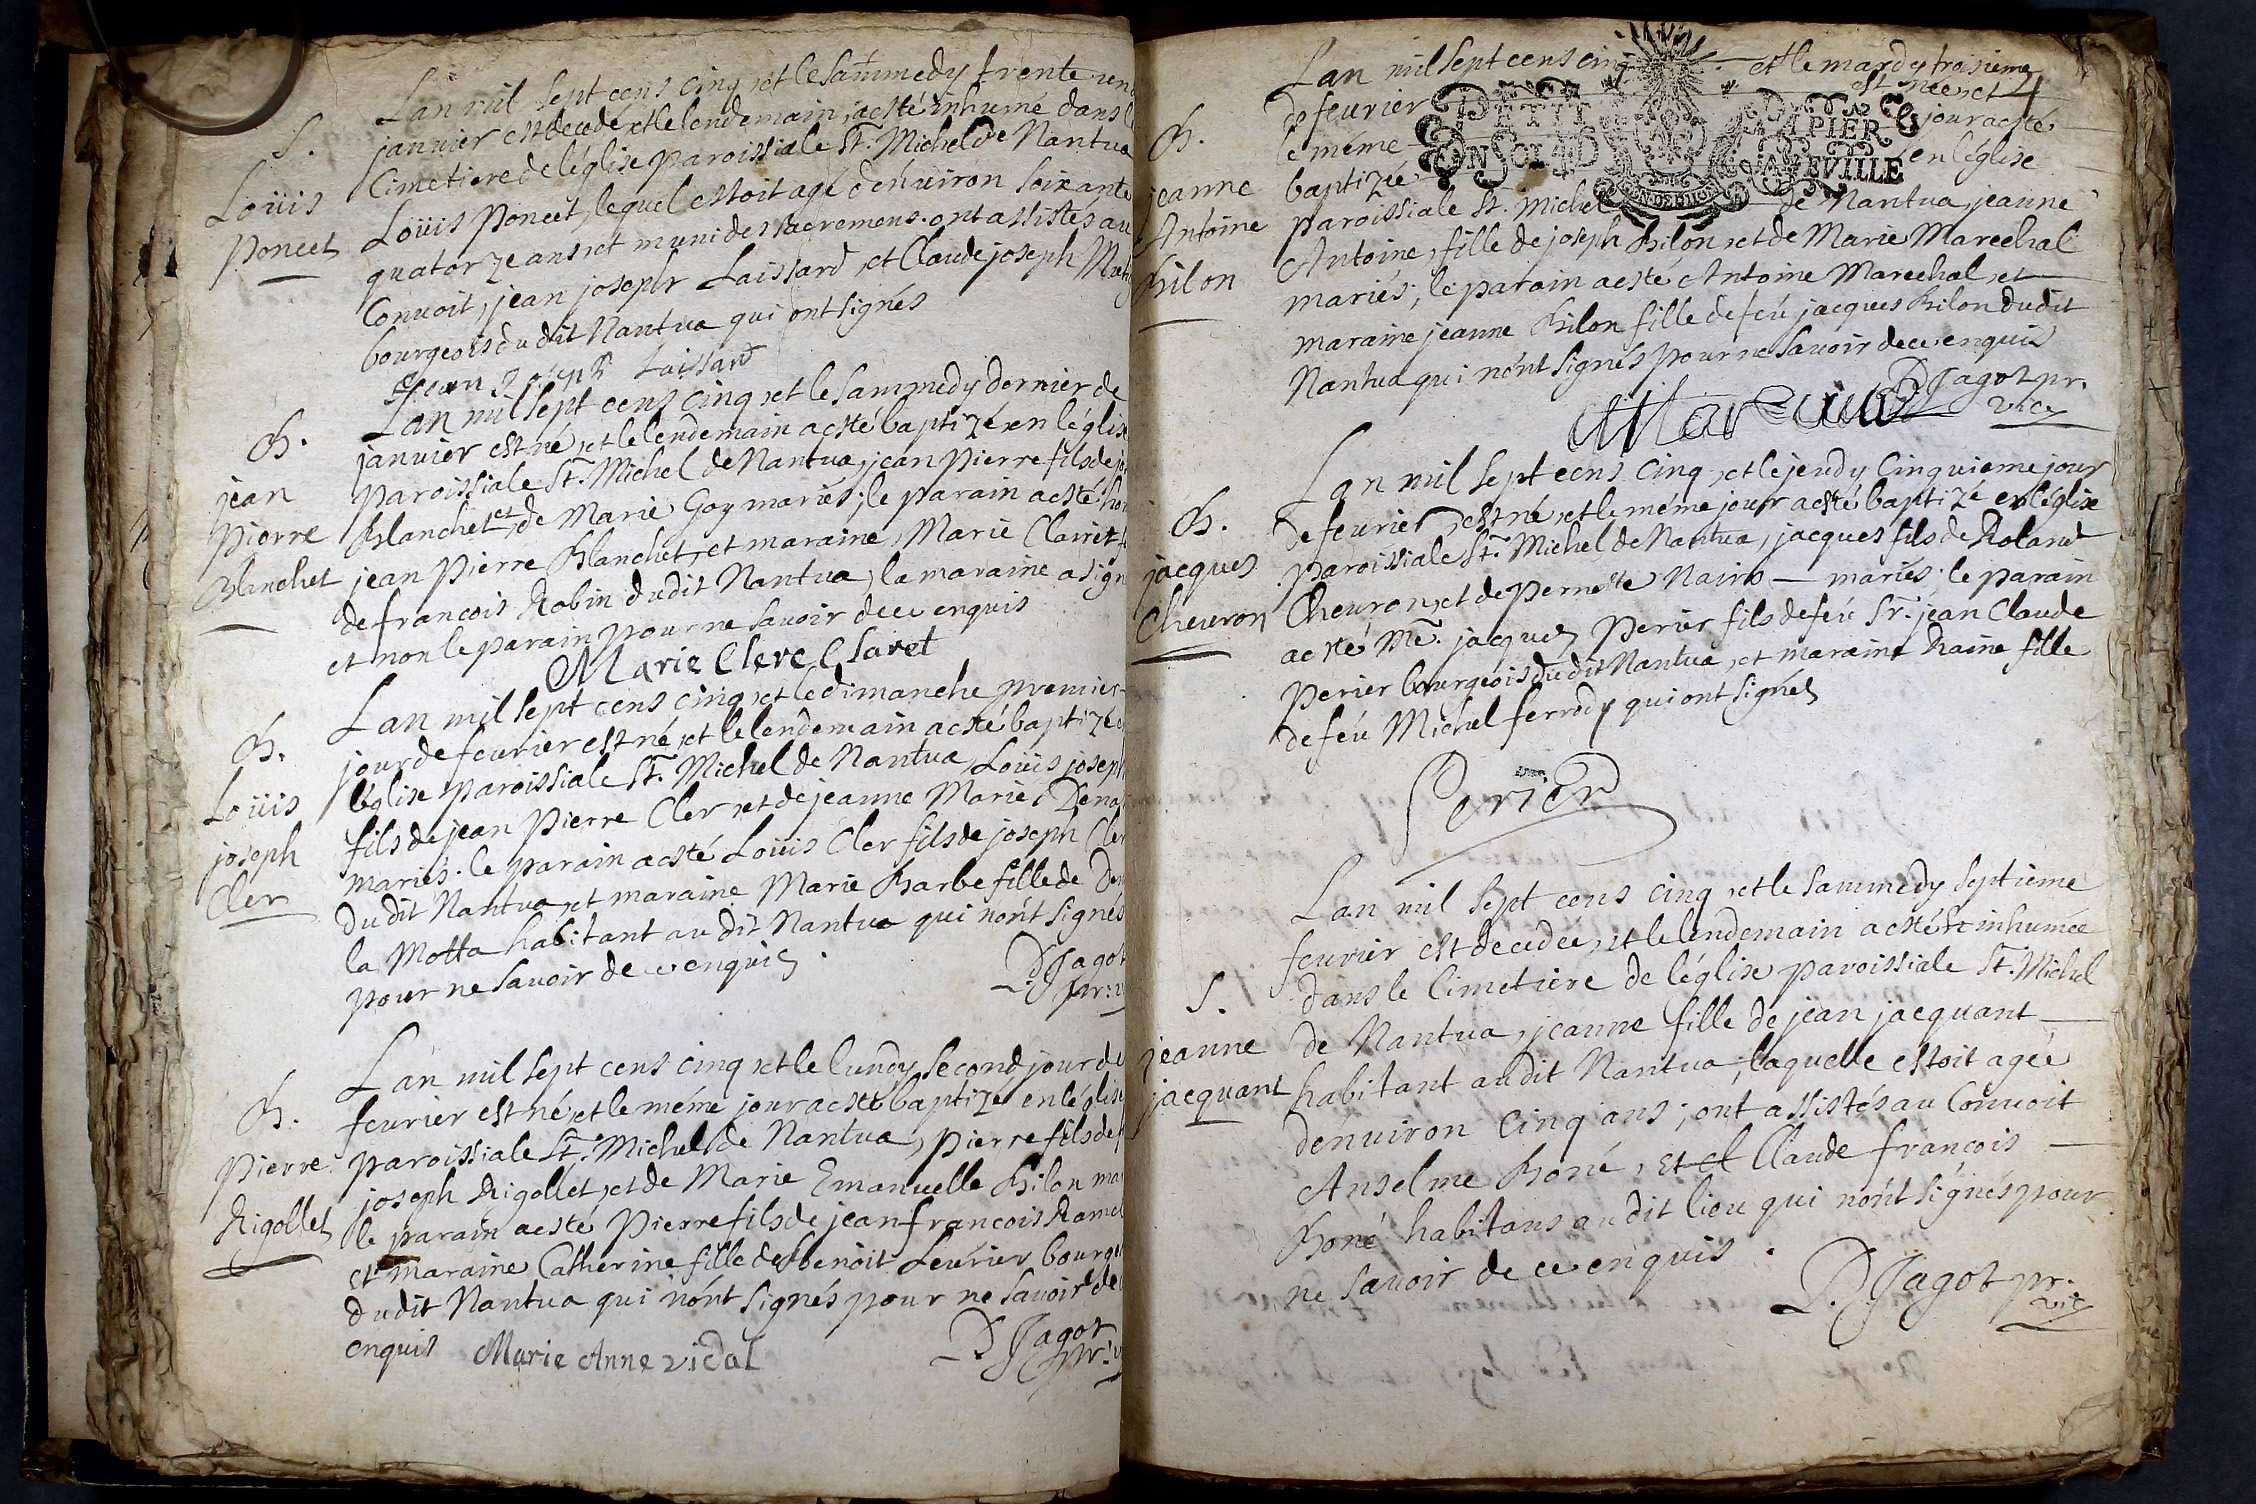 Lan mil sept cens cinq, et le sammedy trente un
janvier est decedé et le lendemain, a esté inhumé dans l
S.
Cimetiere de léglise paroissiale St. Michel de Nantua
Loüis
Loüis Poncet, lequel estoit agé d'énuiron soixante
Poncet
quatorze ans, et muni des sacremens. ont assistés au
Conuoit, jean joseph Laissard, et Claude joseph
bourgeois du dit Nantua qui ont signés
jean joseph Laissard
Lan mil sept cens cinq, et le sammedy dernier de
B.
januier est né, et le lendemain a esté baptizé en léglise
jean
paroissiale St. Michel de Nantua, jean Pierre fils de
Pierre
Blanchet et de Marie Goy mariés; le parain a esté
Blanchet
jean Pierre Blanchet, et maraine, Marie Claret
de françois Robin dudit Nantua, la maraine a sign
et non le parain pour ne sauoir de ce enquis
Marie Clere Claret
Lan mil sept cens cinq, et le dimanche premier
B.
jour de feurier est né, et le lendemain a esté baptizé
Loüis
léglise paroissiale St. Michel de Nantua, Loüis joseph
joseph
fils de jean Pierre Cler, et de jeanne Marie
Cler
mariés. le parain a esté Loüis Cler fils de joseph Cler
dudit Nantua, et maraine Marie Barbe fille de
la Motta habitant au dit Nantua qui nont signés
pour ne sauoir de ce enquis.
D. Jagot
pr: v
Lan mil sept cens cinq, et le lundy second jour de
B.
feurier est né, et le méme jour a esté baptizé en léglise
Pierre
paroissiale St. Michel de Nantua, pierre fils de
Rigollet
joseph Rigollet, et de Marie Emanuelle Bilon ma
le parain a esté Pierre fils de jean françois Ramel
et maraine Catherine fille de benoit Leurier bourge
dudit Nantua qui nónt signés pour ne sauoir de
enquis
Marie Anne vidal
D. Jagot
pr: v
Lan mil sept cens cinq et le mardy troisieme
4
de feurier est née, et
B.
le méme jour a esté
PETIT PAPIER
EN SCEAD VANEVILLE
jeanne
baptizée en léglise
Antoine
paroissiale St. Michel de Nantua, jeanne
Bilon
Antoine, fille de joseph Bilon, et de Marie Marechal
mariés; le parain a esté Antoine Marechal, et
maraine jeanne Bilon fille de feu jacques Bilon dudit
Nantua qui nónt signés pour ne sauoir de ce enquis
D. Jagot pr.
vic
Lan mil sept cens cinq, et le jeudy cinquieme jour
B.
de feurier, est né, et le méme jour a esté baptizé en léglise
jacques
paroissiale St. Michel de Nantua, jacques fils de Roland
Cheuron
Cheuron, et de Pernette Nairo — mariés; le parain
a esté Me. jacques Perier fils de feu Sr. jean Claude
Perier bourgeois dudit Nantua, et maraine Raine fille
de feu Michel ferrody qui ont signés
Perier
Lan mil sept cens cinq, et le sammedy septieme
feurier est decedée, et le lendemain a esté inhumée
S.
dans le Cimetiere de léglise paroissiale St. Michel
jeanne
de Nantua, jeanne fille de jean jacquant —
jacquant
habitant audit Nantua, laquelle estoit agée
dénuiron cinq ans; ont assistés au Conuoit
Anselme Boné, et Claude françois —
Boné habitans audit lieu qui nónt signés pour
ne sauoir de ce enquis.
D. Jagot pr.
vic